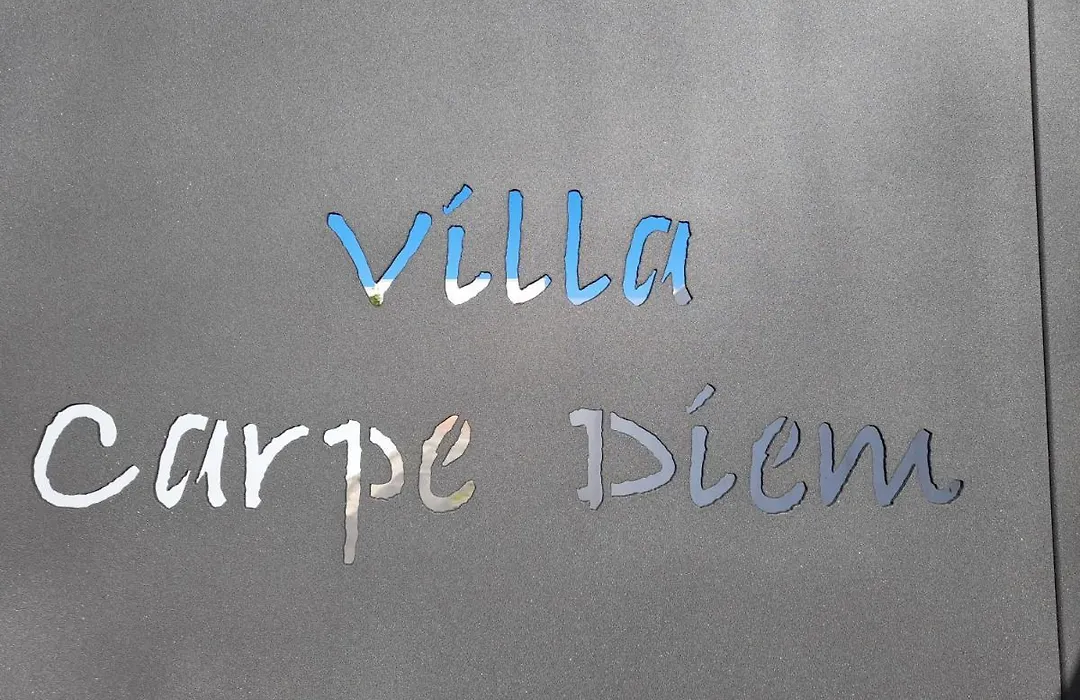 Villa
Carpe Diem